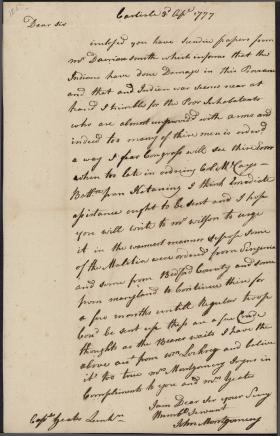 Carlisle 3d Apl 1777
Dear Sir
inclosed you have Sundrie papers from
Mr Davison Smith which informs that the
Indians have done Damage in this Provance
and that and Indian was seen near at
hand I trimble for the Poor Inhabatants
who are almost unprovided with arms and
indeed too many of their men is ordered
a way I fear Congress will see this Error
when too late in ordring Col. McCays
Battn from Kitaning I think Imediate
asistance ought to be sent and I hope
you will write to Mr Wilson to urge
it in the warmest manner Suppose some
of the Malitia were ordered from
and some from Bedford County and some
from maryland to Continue their for
a few months untill Regular troops
Cou'd be sent up thes are a few Crude
thoughts as the Bearer waits I have the
above acct from Wm Lochry and believe
it too true Mrs Montgomery Joyns in
Compliments to you and Mrs Yeates
I am Dear Sir your Very
Humble Servant
John Montgomery
Capt Yeates